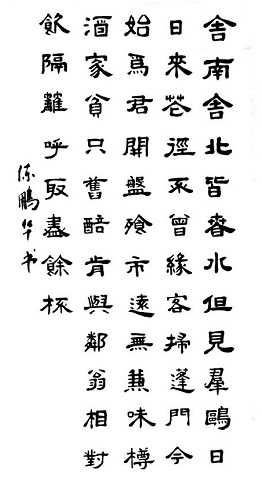 舍南舍北皆春水但見羣鷗日
日來花徑不曾緣客掃蓬門今
始爲君開盤飧市遠無兼味樽
酒家貧只舊醅肯與鄰翁相對
飲隔籬呼取盡餘杯
陈鵬华书